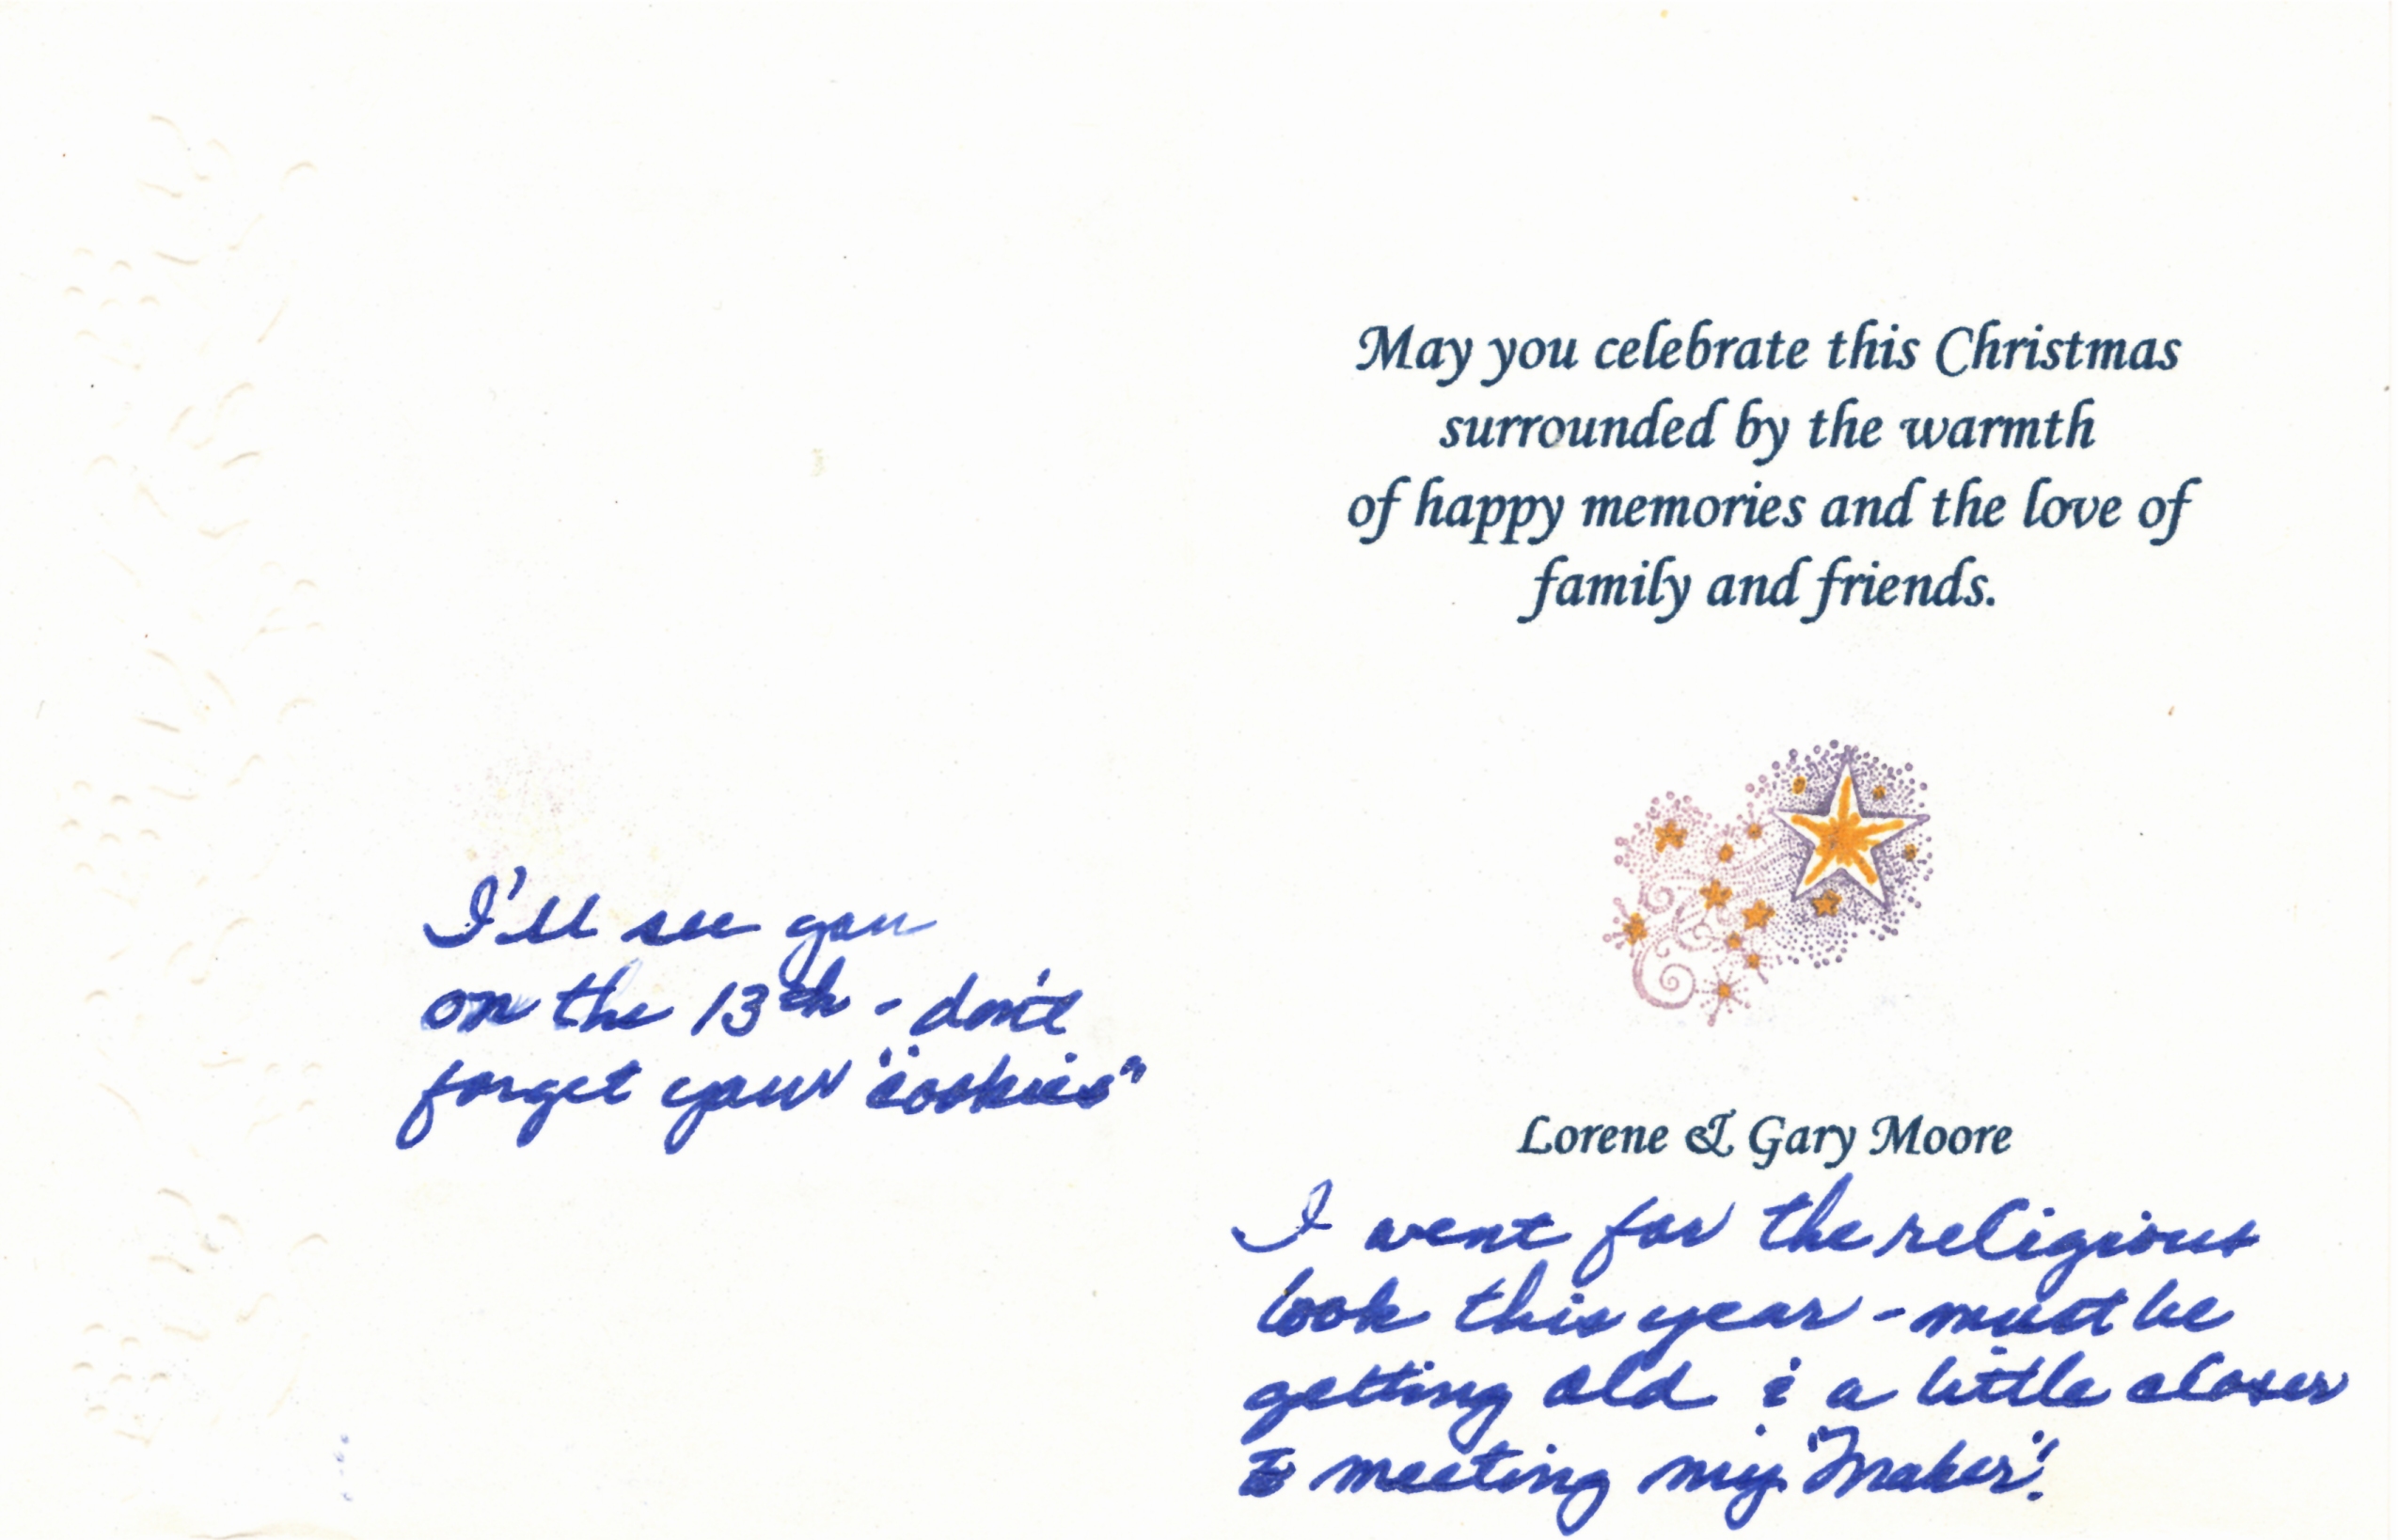 I'll see you
on the 13th - don't
forget your "cookies"
May you celebrate this Christmas
surrounded by the warmth
of happy memories and the love of
family and friends.
Lorene & Gary Moore
I went for the religious
look this year - must be
getting old & a little closer
to meeting my "Maker".